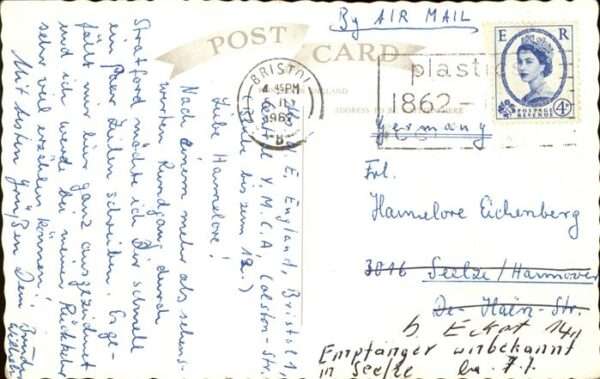 By AIR MAIL
POST CARD
E R
POSTAGE REVENUE
4D
BRISTOL
4 45 PM
196
B
plastic
1862 –
Germany
Frl.
Hannelore Eichenberg
3016 Seelze/Hannover
De-Haën-Str.
b. Eckat
Empfänger unbekannt
in Seelze
E. England, Bristol 1,
Central Y.M.C.A., Colston-Str.
(Bleibe bis zum 18.)
Liebe Hannelore!
Nach einem mehr als sehens-
werten Rundgang durch
Stratford möchte ich Dir schnell
ein paar Zeilen schreiben. Es ge-
fällt mir hier ganz ausgezeichnet
und ich werde bei meiner Rückkehr
sehr viel erzählen können!
Mit besten Grüßen Dein